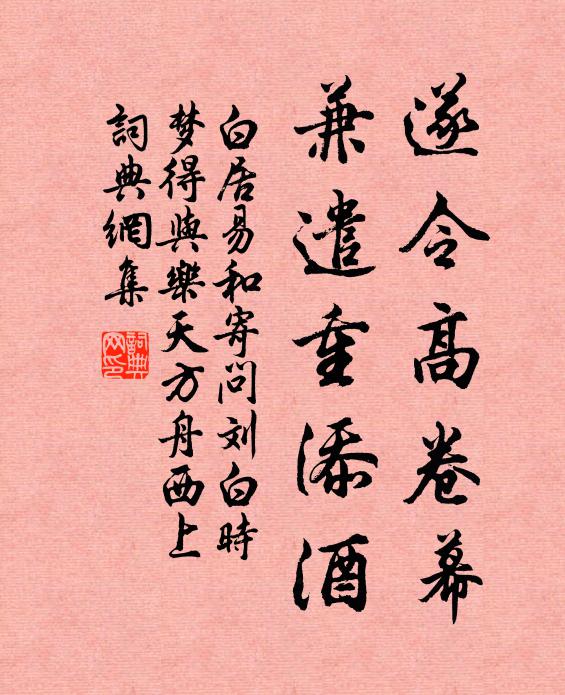 遂令高卷幕
兼遣重添酒
白居易和寄问刘白時
梦得與樂天方舟西上
詞典網集
詞典网印